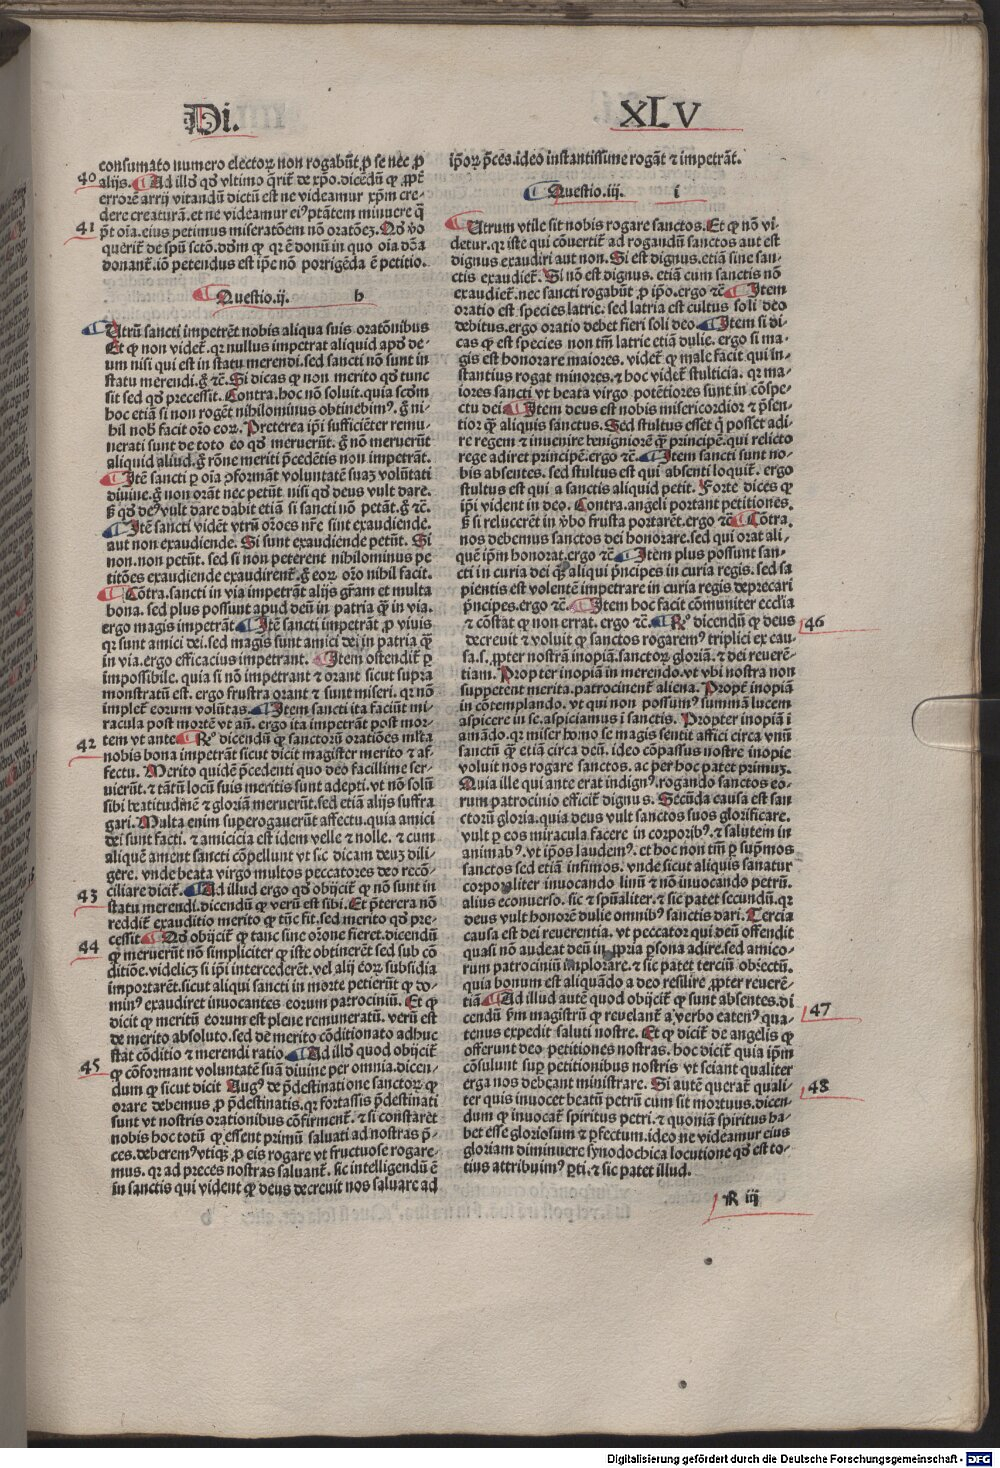 Di. XLV
consumato numero electoꝝ non rogabūt ꝓ se nec ꝓ
40
alijs. Ad illḋ qḋ vltimo q̄rit̄ de xp̄o. dicēdū ꝙ ꝓpt̄
errorē arrij vitandū dictū est ne videamur xp̄m cre⸗
dere creaturā. et ne videamur eiꝰ ptātem minuere q̄
41
p̄t oīa. eius petimus miseratōem nō oratōeꝫ. Qḋ ꝟo
querit̄ de spū sctō. dōm ꝙ qꝛ ē donū in quo oīa dōa
donant̄. iō petendus est ip̄e nō porrigēda ē petitio.
Questio.ij. b
Utrū sancti impetrēt nobis aliqua suis oratōnibus
Et ꝙ non videt̄. qꝛ nullus impetrat aliquid apḋ de⸗
um nisi qui est in statu merendi. sed sancti nō sunt in
statu merendi. g̊ ⁊c̄. Si dicas ꝙ non merito qḋ tunc
sit sed qḋ precessit. Contra. hoc nō soluit. quia scḋm
hoc etiā si non rogēt nihilominus obtinebimꝰ. g̊ ni⸗
hil nob̄ facit or̄o eoꝝ. Preterea ip̄i sufficiēter remu⸗
nerati sunt de toto eo qḋ meruerūt. g̊ nō meruerūt
aliquid aliud. g̊ rōne meriti p̄cedētis non impetrāt.
Itē sancti ꝑ oīa ꝯformāt voluntatē suaꝫ volūtati
diuine. g̊ non orāt nec petūt. nisi qḋ deus vult dare.
ß qḋ deꝰ vult dare dabit etiā si sancti nō petāt. g̊ ⁊c̄.
Itē sancti vidēt vtrū or̄oes nr̄e sint exaudiende.
aut non exaudiende. Si sunt exaudiende petūt. Si
non. non petūt. sed si non peterent nihilominus pe
titōes exaudiende exaudirent̄. g̊ eoꝝ or̄o nihil facit.
Cōtra. sancti in via impetrāt alijs gr̄am et multa
bona. sed plus possunt apud deū in patria q̄ꝫ in via.
ergo magis impetrāt. Itē sancti impetrāt ꝓ viuis
qꝛ sunt amici dei. sed magis sunt amici dei in patria q̄ꝫ
in via. ergo efficacius impetrant. Item ostendit̄ ꝑ
impossibile. quia si nō impetrant ⁊ orant sicut supra
monstratū est. ergo frustra orant ⁊ sunt miseri. qꝛ nō
implet̄ eorum volūtas. Item sancti ita faciūt mi⸗
racula post mortē vt añ. ergo ita impetrāt post mor⸗
42
tem vt ante. Rº dicendū ꝙ sanctorū oratiōes ml̄ta
nobis bona impetrāt sicut dicit magister merito ⁊ af⸗
fectu. Merito quidē p̄cedenti quo deo facillime ser⸗
uierūt. ⁊ tātū locū fuis meritis sunt adepti. vt nō solū
sibi beatitudinē ⁊ gloriā meruerūt. sed etiā alijs suffra
gari. Multa enim suꝑerogauerūt affectu. quia amici
dei sunt facti. ⁊ amicicia est idem velle ⁊ nolle. ⁊ cum
aliquē ament sancti cōpellunt vt sic dicam deuꝫ dili⸗
gere. vnde beata virgo multos peccatores deo recō⸗
43
ciliare dicit̄. Ad illud ergo qḋ obijcit̄ ꝙ nō sunt in
statu merendi. dicendū ꝙ verū est sibi. Et p̄terera nō
reddit̄ exauditio merito ꝙ tūc fit. sed merito qḋ pre⸗
44
cessit. Qḋ obijcit̄ ꝙ tanc sine or̄one fieret. dicendū
ꝙ meruerūt nō simpliciter ꝙ iste obtinerēt sed sub cō
ditiōe. videlicꝫ si ip̄i intercederēt. vel alij eoꝝ subsidia
importarēt. sicut aliqui sancti in morte petierūt ꝙ do⸗
minꝰ exaudiret inuocantes eorum patrociniū. Et ꝙ
dicit ꝙ meritū eorum est plene remuneratū. verū est
de merito absoluto. sed de merito cōditionato adhuc
stat cōditio ⁊ merendi ratio. Ad illḋ quod obijcit̄
45
ꝙ cōformant voluntatē suā diuine per omnia. dicen⸗
dum ꝙ sicut dicit Augꝰ de p̄destinatione sanctoꝝ ꝙ
orare debemus ꝓ p̄destinatis. qꝛ fortassis p̄destinati
sunt vt nostris orationibus cōfirment̄. ⁊ si constaret
nobis hoc totū ꝙ essent primū saluati ad nostras p̄⸗
ces. deberemꝰ vtiqꝫ ꝓ eis rogare vt fructuose rogare⸗
mus. qꝛ ad preces nostras saluant̄. sic intelligendū ē
in sanctis qui vident ꝙ deus decreuit nos saluare ad
ip̄oꝝ p̄ces. ideo instantissime rogāt ⁊ impetrāt.
Questio.iij. i
Utrum vtile sit nobis rogare sanctos. Et ꝙ nō vi⸗
detur. qꝛ iste qui cōuertit̄ ad rogandū sanctos aut est
dignus exaudiri aut non. Si est dignus. etiā sine san⸗
ctis exaudiet̄. Si nō est dignus. etiā cum sanctis nō
exaudiet̄. nec sancti rogabūt ꝓ ip̄o. ergo ⁊c̄. Item
oratio est species latrie. sed latria est cultus soli deo
debitus. ergo oratio debet fieri soli deo. Item si di⸗
cas ꝙ est species non tm̄ latrie etiā dulie. ergo si ma⸗
gis est honorare maiores. videt̄ ꝙ male facit qui in⸗
stantius rogat minores. ⁊ hoc videt̄ stulticia. qꝛ ma⸗
iores sancti vt beata virgo potētiores sunt in cōspe⸗
ctu dei. Item deus est nobis misericordior ⁊ p̄sen⸗
tior q̄ꝫ aliquis sanctus. Sed stultus esset q̇ posset adi⸗
re regem ⁊ inuenire benigniorē q̄ꝫ principē. qui relicto
rege adiret principē. ergo ⁊c̄. Item sancti sunt no⸗
bis absentes. sed stultus est qui absenti loquit̄. ergo
stultus est qui a sanctis aliquid petit. Forte dices ꝙ
ip̄i vident in deo. Contra. angeli portant petitiones.
ß si relucerēt in ꝟbo frustra portarēt. ergo ⁊c̄. Cōtra.
nos debemus sanctos dei honorare. sed qui orat ali⸗
quē ip̄m honorat. ergo ⁊c̄. Item plus possunt san⸗
cti in curia dei q̄ꝫ aliqui p̄ncipes in curia regis. sed sa
pientis est volentē impetrare in curia regis deprecari
p̄ncipes. ergo ⁊c̄. Item hoc facit cōmuniter ecclīa
⁊ cōstat ꝙ non errat. ergo ⁊c̄. Rº dicendū ꝙ deus
46
decreuit ⁊ voluit ꝙ sanctos rogaremꝰ triplici ex cau⸗
sa.s. ꝓpter nostrā inopiā. sanctoꝝ gloriā. ⁊ dei reuerē⸗
tiam. Propter inopiā in merendo. vt vbi nostra non
suppetent merita. patrocinent̄ aliena. Propt̄ inopiā
in cōtemplando. vt qui non possumꝰ summā lucem
aspicere in se. aspiciamus ī sanctis. Propter inopiā ī
amādo. qꝛ miser homo se magis sentit affici circa vnū
sanctū q̄ꝫ etiā circa deū. ideo cōpassus nostre inopie
voluit nos rogare sanctos. ac per hoc patet primuꝫ.
Quia ille qui ante erat indignꝰ. rogando sanctos eo⸗
rum patrocinio efficit̄ dignus. Secūda causa est san
ctorū gloria. quia deus vult sanctos suos glorificare.
vult ꝑ eos miracula facere in corporibꝰ. ⁊ salutem in
animabꝰ. vt ip̄os laudemꝰ. et hoc non tm̄ ꝑ sup̄mos
sanctos sed etiā infimos. vnde sicut aliquis sanatur
corporaliter inuocando linū ⁊ nō inuocando petrū.
alius econuerso. sic ⁊ spūaliter. ⁊ sic patet secundū. qꝛ
deus vult honorē dulie omnibꝰ sanctis dari. Tercia
causa est dei reuerentia. vt peccator qui deū offendit
quasi nō audeat deū in ꝓpria ꝑsona adire. sed amico⸗
rum patrociniū implorare. ⁊ sic patet terciū obiectū.
quia bonum est aliquādo a deo resilire ꝓpter reuerē⸗
tiā. Ad illud autē quod obijcit̄ ꝙ sunt absentes. di
47
cendū ẜm magistrū ꝙ reuelant̄ a verbo eatenꝰ qua⸗
tenus expedit saluti nostre. Et ꝙ dicit̄ de angelis ꝙ
offerunt deo petitiones nostras. hoc dicit̄ quia ip̄m
cōsulunt suꝑ petitionibus nostris vt sciant qualiter
erga nos debeant ministrare. Si autē querat̄ quali⸗
48
ter quis inuocet beatū petrū cum sit mortuus. dicen⸗
dum ꝙ inuocat̄ spiritus petri. ⁊ quoniā spiritus ha⸗
bet esse gloriosum ⁊ ꝑfectum. ideo ne videamur eius
gloriam diminuere synodochica locutione qḋ est to⸗
tius attribuimꝰ ꝑti. ⁊ sic patet illud.
R iij
Digitalisierung gefördert durch die Deutsche Forschungsgemeinschaft - DFG